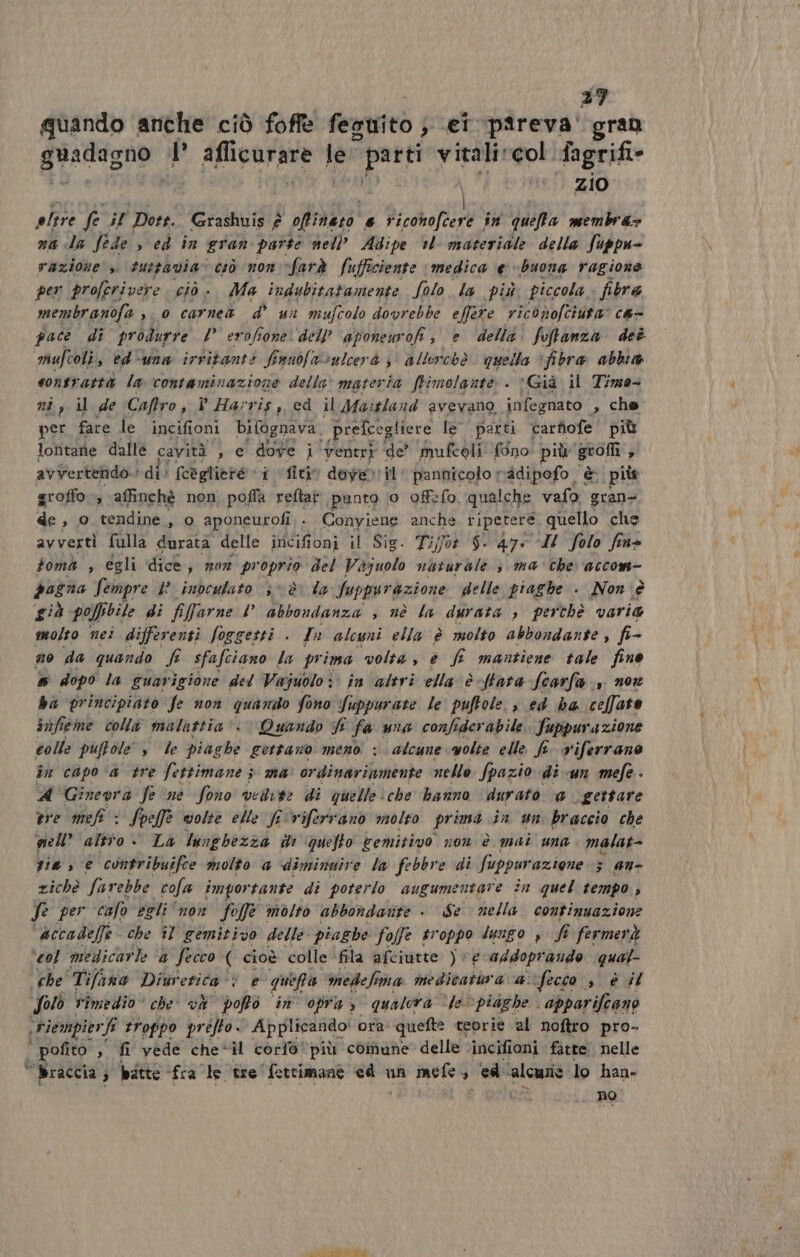 27
quando anche ciò foſſe ſeguito, ci pareva gran
guadagno l' aſſicurare le parti vitali col ſagrifi-
zio
oltre ſe il Dott. Grashuis è oſtinato a riconoſcere in queſta membra-
na la ſede, ed in gran parte nell' Adipe il materiale della ſuppu-
razione, tuttavia ciò non ſarà ſufficiente medica e buona ragione
per proſcrivere ciò. Ma indubitatamente ſolo la più piccola fibra
membranoſa, o carnea d' un muſcolo dovrebbe eſſere riconoſciuta ca-
pace di produrre l' eroſione dell' aponeuroſi, e della ſoſtanza deè
muſcoli, ed una irritante ſinuoſa ulcera, allorchè quella fibra abbia
contratta la contaminazione della materia ſtimolante. Già il Timo-
ni, il de Caſtro, l' Harris, ed il Maitland avevano inſegnato, che
per fare le inciſioni biſognava preſcegliere le parti carnoſe più
lontane dalle cavità, e dove i ventri de' muſcoli ſono più groſſi,
avvertendo di ſcegliere i ſiti dove il pannicolo adipoſo è più
groſſo, affinchè non poſſa reſtar punto o offeſo qualche vaſo gran-
de, o tendine, o aponeuroſi. Conviene anche ripetere quello che
avvertì ſulla durata delle inciſioni il Sig. Tiſſot §. 47. Il ſolo ſin-
toma, egli dice, non proprio del Vajuolo naturale, ma che accom-
pagna ſempre l' inoculato, è la ſuppurazione delle piaghe. Non è
già poſſibile di fiſſarne l' abbondanza, nè la durata, perchè varia
molto nei differenti ſoggetti. In alcuni ella è molto abbondante, fi-
no da quando ſi sfaſciano la prima volta, e ſi mantiene tale fino
a dopo la guarigione del Vajuolo: in altri ella è ſtata ſcarſa, non
ha principiato ſe non quando ſono ſuppurate le puſtole, ed ha ceſſato
inſieme colla malattia. Quando ſi fa una conſiderabile ſuppurazione
colle puſtole, le piaghe gettano meno: alcune volte elle ſi riſerrano
in capo a tre ſettimane; ma ordinariamente nello ſpazio di un meſe.
A Ginevra ſe ne ſono vedute di quelle che hanno durato a gettare
tre meſi: ſpeſſe volte elle ſi riſerrano molto prima in un braccio che
nell' altro. La lunghezza di queſto gemitivo non è mai una malat-
tia, e contribuiſce molto a diminuire la febbre di ſuppurazione; an-
zichè ſarebbe coſa importante di poterlo augumentare in quel tempo,
ſe per caſo egli non foſſe molto abbondante. Se nella continuazione
accadeſſe che il gemitivo delle piaghe foſſe troppo lungo, ſi fermerà
col medicarle a ſecco (cioè colle fila aſciutte) e addoprando qual-
che Tiſana Diuretica; e queſta medeſima medicatura a ſecco, è il
ſolo rimedio che và poſto in opra, qualora le piaghe appariſcano
riempierſi troppo preſto. Applicando ora queſte teorie al noſtro pro-
poſito, ſi vede che il corſo più comune delle inciſioni fatte nelle
braccia, batte fra le tre ſettimane ed un meſe, ed alcune lo han-
no